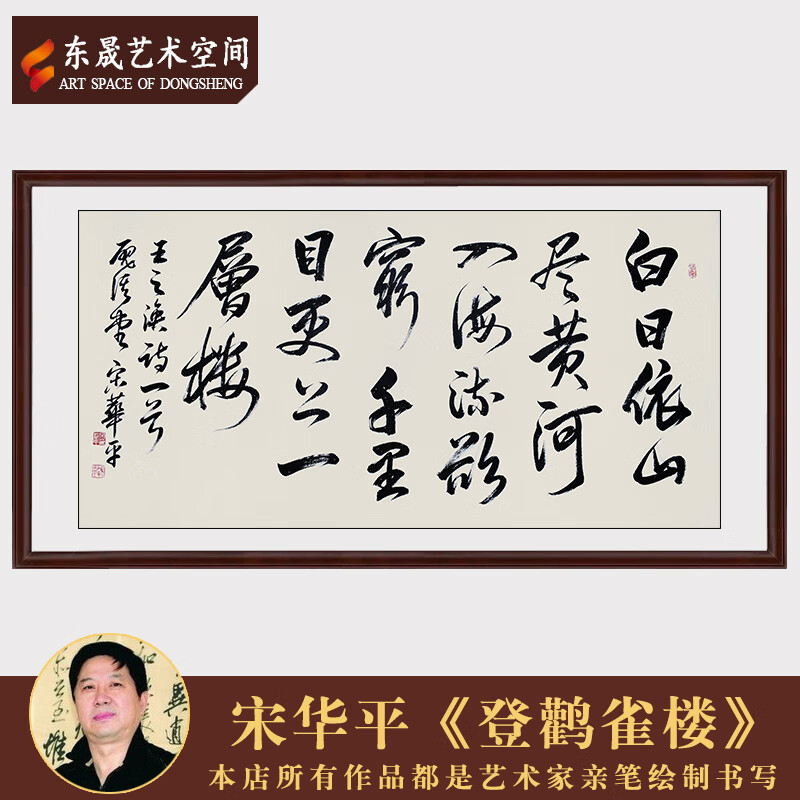 东晟艺术空间
ART SPACE OF DONGSHENG
白日依山
尽黄河
入海流欲
窮千里
目更上一
層楼
王之渙诗一首
宋華平
宋华平《登鹳雀楼》
本店所有作品都是艺术家亲笔绘制书写